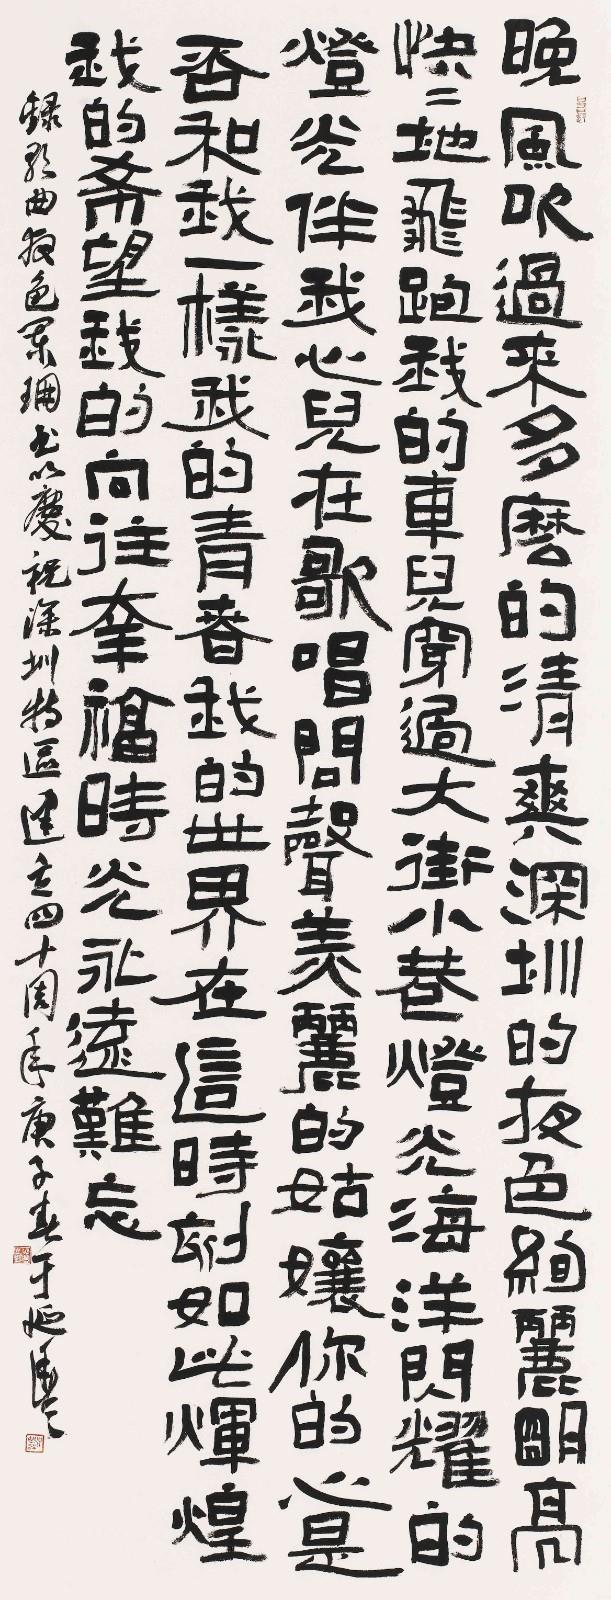 晚風吹過来多麼的清爽深圳的夜色絢麗明亮
快二地飛跑我的車兒穿過大街小巷燈光海洋閃耀的
燈光伴我心兒在歌唱問聲美麗的姑孃你的心是
否和我一樣我的青春我的世界在這時刻如此輝煌
我的希望我的向往幸福時光永遠難忘
録歌曲夜色闌珊書以慶祝深圳特區建立四十周年庚子春于